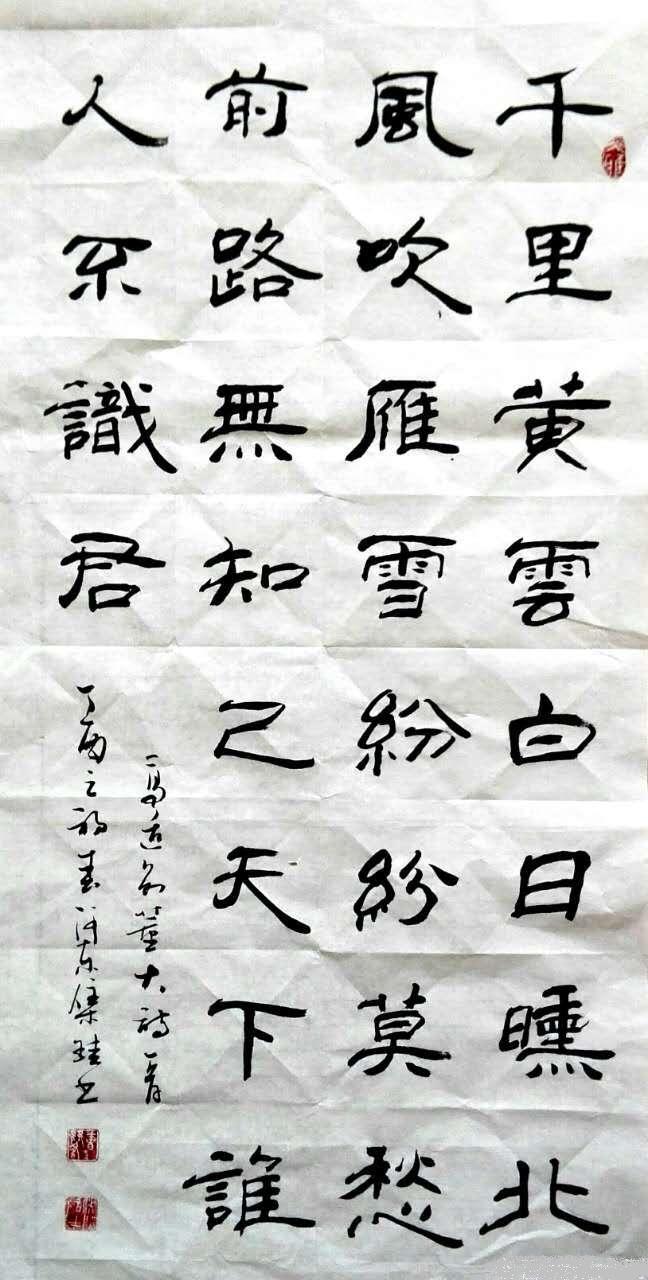 千里黄雲白日曛北
風吹雁雪紛紛莫愁
前路無知己天下誰
人不識君
高適别董大詩一首
丁酉之初春河东集珪书